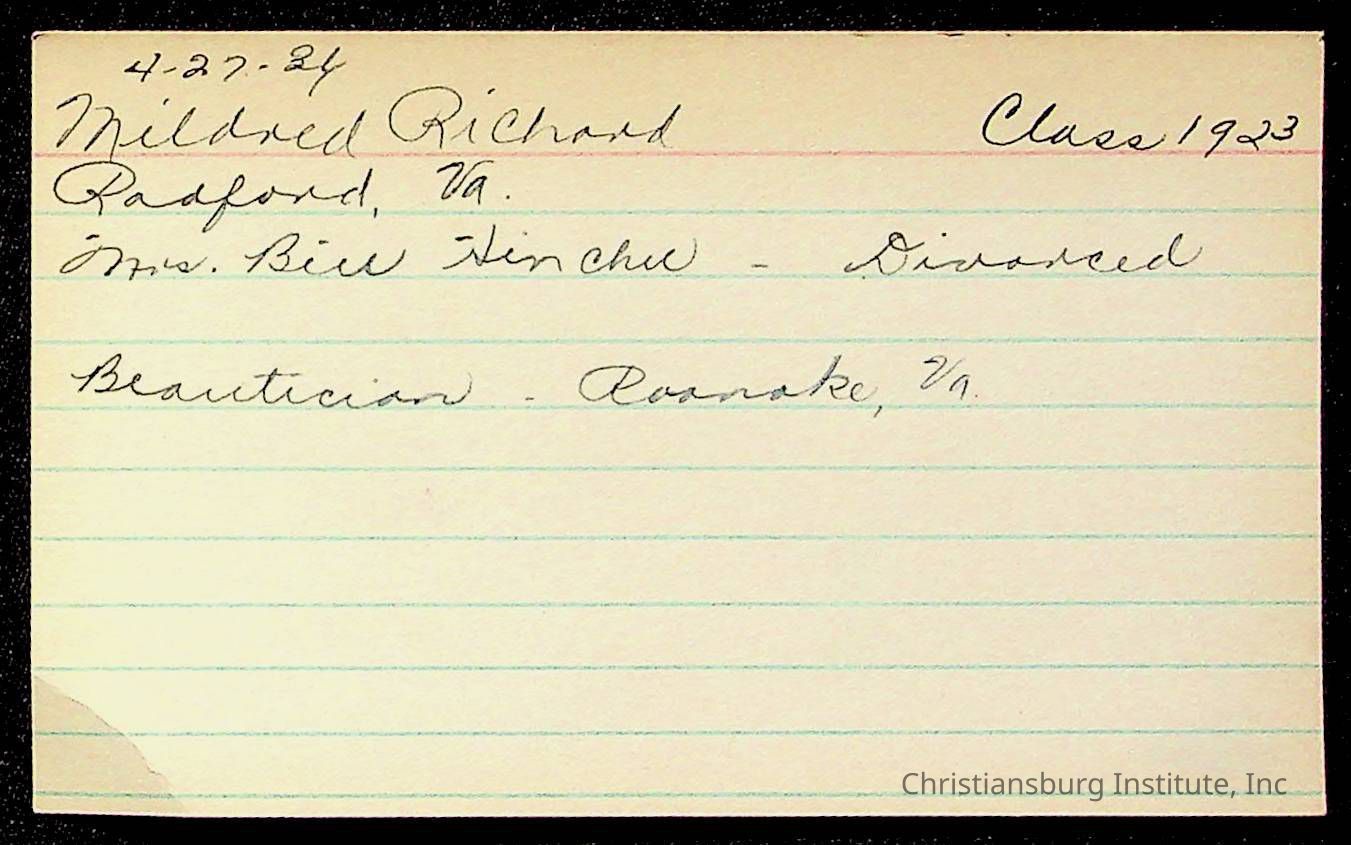 4-27-24
Mildred Richard Class 1923
Radford, Va.
Mrs. Bill - Divorced
Beautician - Roanoke, Va.
Christiansburg Institute, Inc